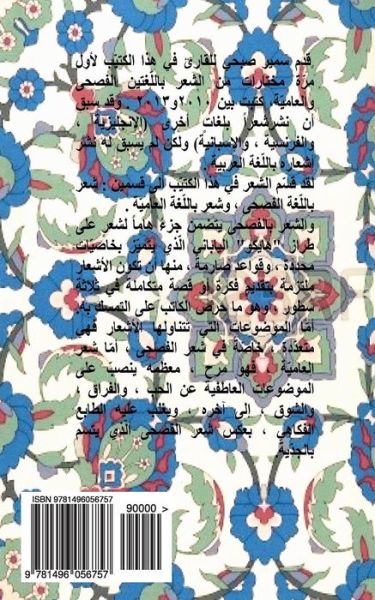 قدم سمير صبحي للقارئ في هذا الكتيب لأول
مرّة مختارات من الشعر باللّغتين الفصحى
والعاميّة، كتبت بين ٢٠١٠ و٢٠١٣. وقد سبق
أن نشر شعر بلغات أخرى (الإنجليزية،
والفرنسية، والإسبانية) ولكن لم يسبق له نشر
أشعاره باللّغة العربية.
لقد قسّم الشعر في هذا الكتيب إلى قسمين: شعر
باللّغة الفصحى، وشعر باللّغة العاميّة.
والشعر بالفصحى يتضمن جزءً هاماً لشعر على
طراز "هايكو" الياباني الذي يتميّز بخاصيات
محدّدة، وقواعد صارمة، منها أن تكون الأشعار
ملتزمة بتقديم فكرة أو قصة متكاملة في ثلاثة
سطور، وهو ما حرص الكاتب على التمسك به.
أمّا الموضوعات التي تتناولها الأشعار فهي
متعدّدة، خاصة في شعر الفصحى، أمّا شعر
العاميّة، فهو مرح، معظمه ينصب على
الموضوعات العاطفية عن الحب، والفراق،
والشوق، الى آخره، ويغلب عليه الطابع
الفكاهي، بعكس شعر الفصحى الّذي يتسم
بالجدّية.
ISBN 9781496056757
90000 >
9 781496 056757